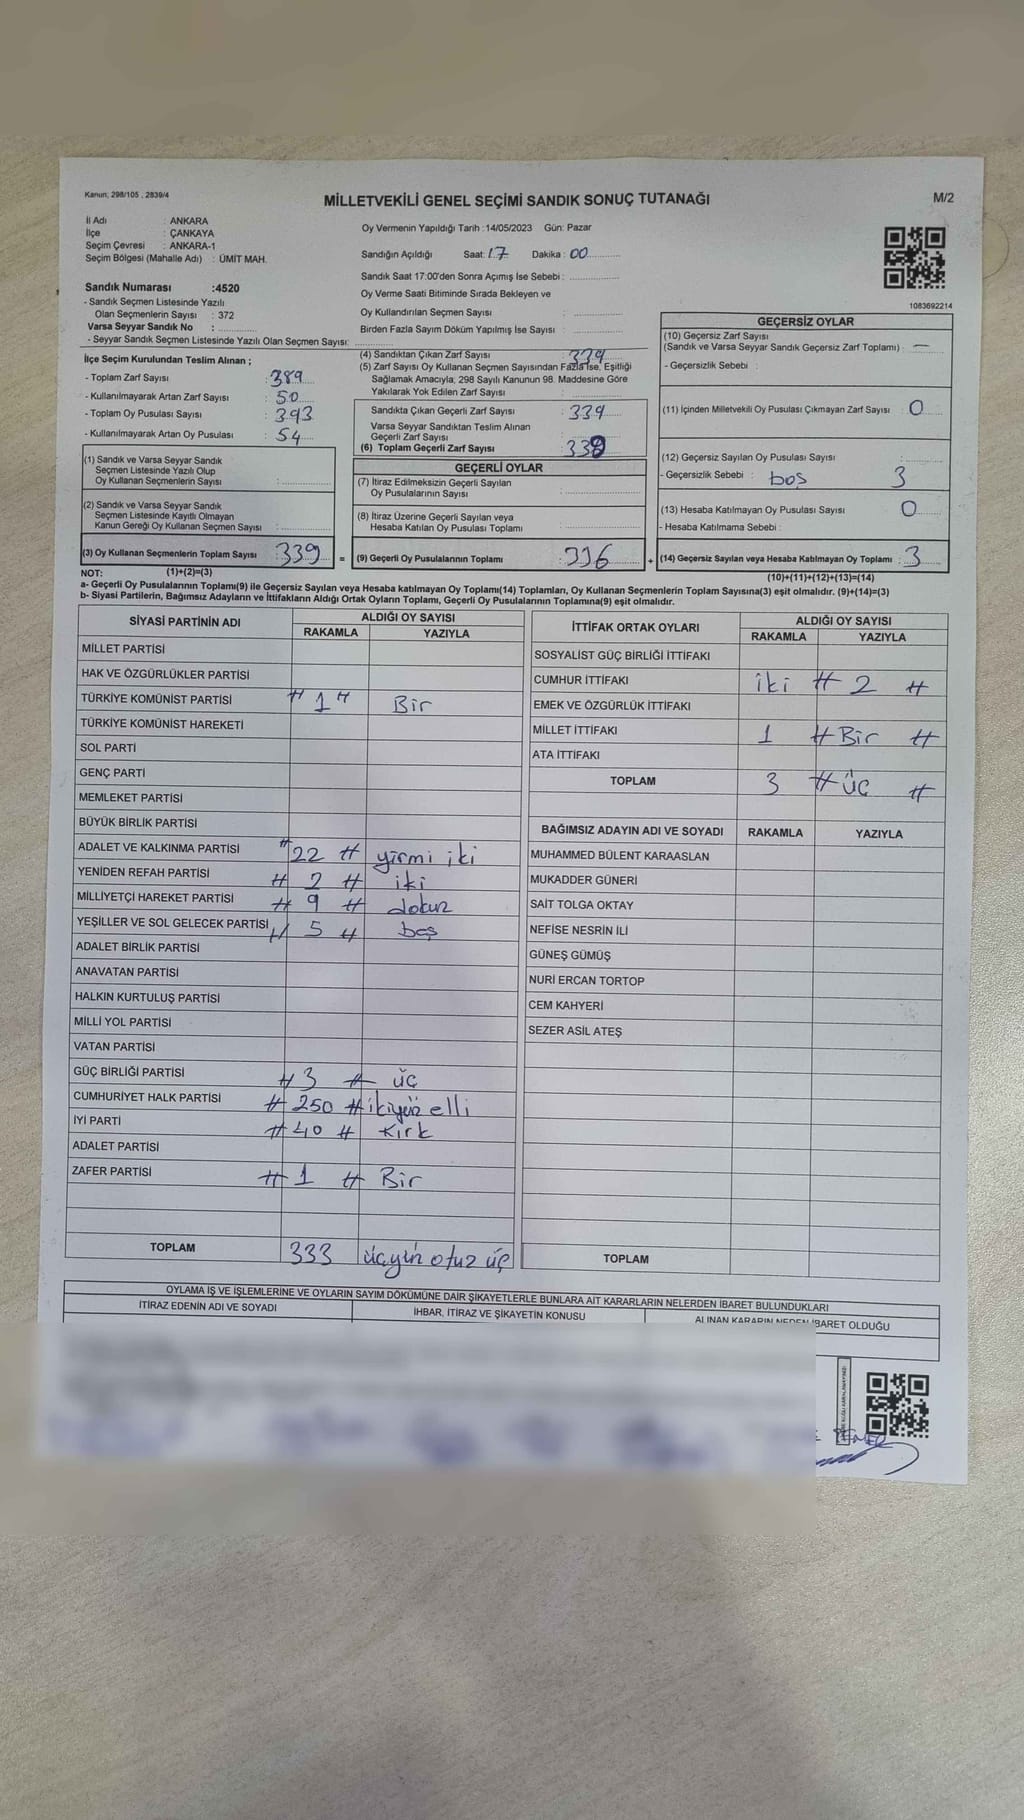 Kanun; 298/105 , 2839/4
MİLLETVEKİLİ GENEL SEÇİMİ SANDIK SONUÇ TUTANAĞI
M/2
İl Adı : ANKARA
İlçe : ÇANKAYA
Seçim Çevresi : ANKARA-1
Seçim Bölgesi (Mahalle Adı) : ÜMİT MAH.
Sandık Numarası :4520
- Sandık Seçmen Listesinde Yazılı
Olan Seçmenlerin Sayısı : 372
Varsa Seyyar Sandık No :
- Seyyar Sandık Seçmen Listesinde Yazılı Olan Seçmen Sayısı:
Oy Vermenin Yapıldığı Tarih :14/05/2023 Gün: Pazar
Sandığın Açıldığı Saat: 17 Dakika : 00
Sandık Saat 17:00'den Sonra Açımış İse Sebebi :
Oy Verme Saati Bitiminde Sırada Bekleyen ve
Oy Kullandırılan Seçmen Sayısı :
Birden Fazla Sayım Döküm Yapılmış İse Sayısı :
1083692214
İlçe Seçim Kurulundan Teslim Alınan ;
- Toplam Zarf Sayısı : 389
- Kullanılmayarak Artan Zarf Sayısı : 50
- Toplam Oy Pusulası Sayısı : 393
- Kullanılmayarak Artan Oy Pusulası : 54
(1) Sandık ve Varsa Seyyar Sandık
Seçmen Listesinde Yazılı Olup
Oy Kullanan Seçmenlerin Sayısı :
(2) Sandık ve Varsa Seyyar Sandık
Seçmen Listesinde Kayıtlı Olmayan
Kanun Gereği Oy Kullanan Seçmen Sayısı :
(3) Oy Kullanan Seçmenlerin Toplam Sayısı : 339 =
(1)+(2)=(3)
(4) Sandıktan Çıkan Zarf Sayısı : 339
(5) Zarf Sayısı Oy Kullanan Seçmen Sayısından Fazla İse, Eşitliği
Sağlamak Amacıyla, 298 Sayılı Kanunun 98. Maddesine Göre
Yakılarak Yok Edilen Zarf Sayısı :
Sandıkta Çıkan Geçerli Zarf Sayısı : 339
Varsa Seyyar Sandıktan Teslim Alınan
Geçerli Zarf Sayısı :
(6) Toplam Geçerli Zarf Sayısı : 339
GEÇERLİ OYLAR
(7) İtiraz Edilmeksizin Geçerli Sayılan
Oy Pusulalarının Sayısı :
(8) İtiraz Üzerine Geçerli Sayılan veya
Hesaba Katılan Oy Pusulası Toplamı :
(9) Geçerli Oy Pusulalarının Toplamı : 336 +
GEÇERSİZ OYLAR
(10) Geçersiz Zarf Sayısı
(Sandık ve Varsa Seyyar Sandık Geçersiz Zarf Toplamı) : —
- Geçersizlik Sebebi :
(11) İçinden Milletvekili Oy Pusulası Çıkmayan Zarf Sayısı : 0
(12) Geçersiz Sayılan Oy Pusulası Sayısı :
- Geçersizlik Sebebi : boş 3
(13) Hesaba Katılmayan Oy Pusulası Sayısı : 0
- Hesaba Katılmama Sebebi :
(14) Geçersiz Sayılan veya Hesaba Katılmayan Oy Toplamı : 3
(10)+(11)+(12)+(13)=(14)
NOT:
a- Geçerli Oy Pusulalarının Toplamı(9) ile Geçersiz Sayılan veya Hesaba katılmayan Oy Toplamı(14) Toplamları, Oy Kullanan Seçmenlerin Toplam Sayısına(3) eşit olmalıdır. (9)+(14)=(3)
b- Siyasi Partilerin, Bağımsız Adayların ve İttifakların Aldığı Ortak Oyların Toplamı, Geçerli Oy Pusulalarının Toplamına(9) eşit olmalıdır.
SİYASİ PARTİNİN ADI
ALDIĞI OY SAYISI
RAKAMLA YAZIYLA
MİLLET PARTİSİ
HAK VE ÖZGÜRLÜKLER PARTİSİ
TÜRKİYE KOMÜNİST PARTİSİ # 1 # Bir
TÜRKİYE KOMÜNİST HAREKETİ
SOL PARTİ
GENÇ PARTİ
MEMLEKET PARTİSİ
BÜYÜK BİRLİK PARTİSİ
ADALET VE KALKINMA PARTİSİ # 22 # yirmi iki
YENİDEN REFAH PARTİSİ # 2 # iki
MİLLİYETÇİ HAREKET PARTİSİ # 9 # dokuz
YEŞİLLER VE SOL GELECEK PARTİSİ # 5 # beş
ADALET BİRLİK PARTİSİ
ANAVATAN PARTİSİ
HALKIN KURTULUŞ PARTİSİ
MİLLİ YOL PARTİSİ
VATAN PARTİSİ
GÜÇ BİRLİĞİ PARTİSİ # 3 # üç
CUMHURİYET HALK PARTİSİ # 250 # ikiyüz elli
İYİ PARTİ # 40 # Kırk
ADALET PARTİSİ
ZAFER PARTİSİ # 1 # Bir
TOPLAM 333 üçyüz otuz üç
İTTİFAK ORTAK OYLARI
ALDIĞI OY SAYISI
RAKAMLA YAZIYLA
SOSYALİST GÜÇ BİRLİĞİ İTTİFAKI
CUMHUR İTTİFAKI iki # 2 #
EMEK VE ÖZGÜRLÜK İTTİFAKI
MİLLET İTTİFAKI 1 # Bir #
ATA İTTİFAKI
TOPLAM 3 # üç #
BAĞIMSIZ ADAYIN ADI VE SOYADI RAKAMLA YAZIYLA
MUHAMMED BÜLENT KARAASLAN
MUKADDER GÜNERİ
SAİT TOLGA OKTAY
NEFİSE NESRİN İLİ
GÜNEŞ GÜMÜŞ
NURİ ERCAN TORTOP
CEM KAHYERİ
SEZER ASİL ATEŞ
TOPLAM
OYLAMA İŞ VE İŞLEMLERİNE VE OYLARIN SAYIM DÖKÜMÜNE DAİR ŞİKAYETLERLE BUNLARA AİT KARARLARIN NELERDEN İBARET BULUNDUKLARI
İTİRAZ EDENİN ADI VE SOYADI İHBAR, İTİRAZ VE ŞİKAYETİN KONUSU ALINAN KARARIN NEDEN İBARET OLDUĞU